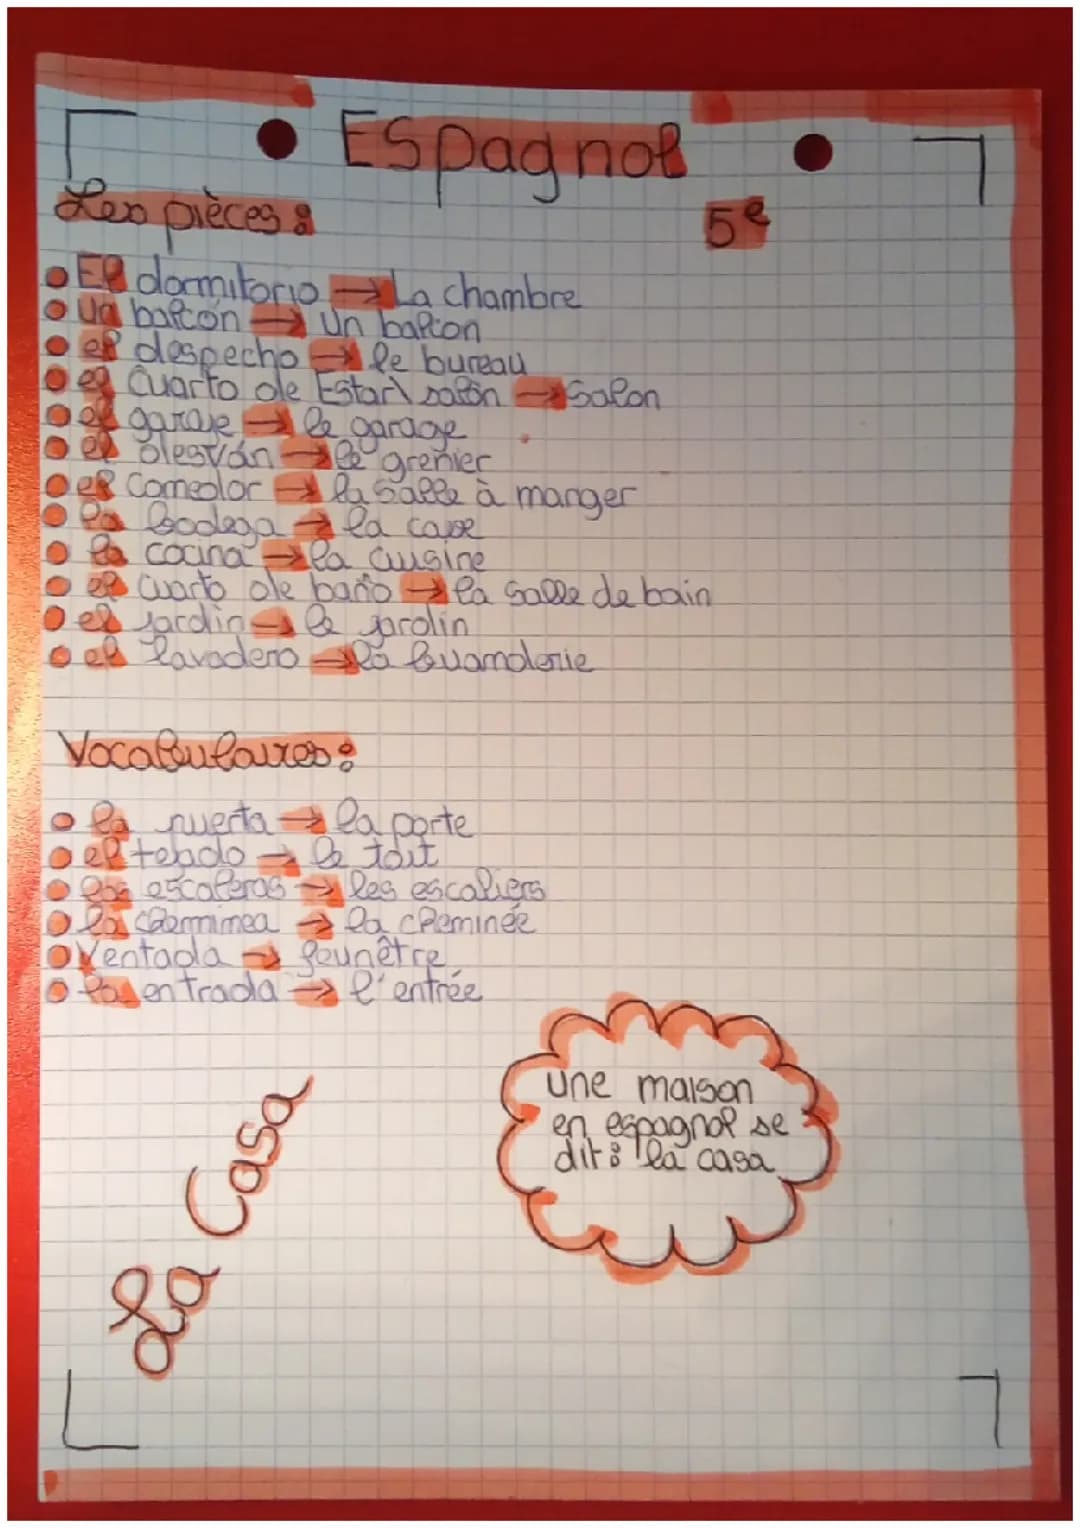 Espagnol
Les pièces :
5e
El dormitorio → La chambre
Un balcón → Un balcon
el despecho → le bureau
el Cuarto de Estar\ salón → Salon
el garaje → le garage
el desván → le grenier
el Comedor → la Salle à manger
la bodega → la cave
la cocina → la cuisine
el cuarto de baño → la salle de bain
el jardin → le jardin
el lavadero → la buanderie
Vocabulaires :
la puerta → la porte
el tejado → le toit
las escaleras → les escaliers
la → la cheminée
Ventada → feunêtre
la entrada → l'entrée
une maison
en espagnol se
dit : la casa
La Casa